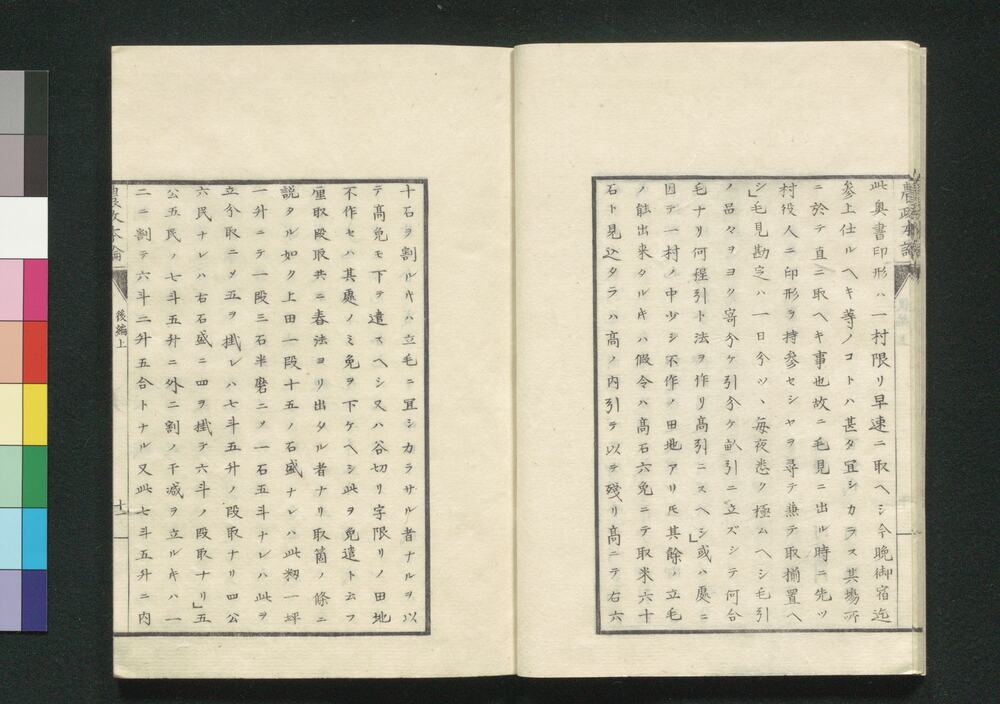 此奥書印形ハ一村限リ早速ニ取ヘシ今晩御宿迄
参上仕ルヘキ等ノコトハ甚タ冝シカラス其場所
ニ於テ直ニ取ヘキ事也故ニ毛見ニ出ル時ニ先ツ
村役人ニ印形ヲ持参セシヤヲ尋テ兼テ取揃置ヘ
シ」毛見勘定ハ一日分ツヽ毎夜悉ク極ムヘシ毛引
ノ品々ヲヨク寄分ケ引分ケ畝引ニ立ズシテ何合
毛ナリ何程引ト法ヲ作リ高引ニスヘシ」或ハ處ニ
因テ一村ノ中少シ不作ノ田地アリ𪜈其餘ノ立毛
ノ能出来タルキハ假令ハ高石六免ニテ取米六十
石ト見込タラハ高ノ内引テ以テ殘リ高ニテ右六
十石ヲ割ルキハ立毛ニ冝シカラサル者ナルヲ以
テ高免モ下ヲ遣スヘシ又ハ谷切リ字限リノ田地
不作セハ其處ノミ免ヲ下ケヘシ此ヲ免遣ト云フ
厘取段取共ニ舂法ヨリ出タル者ナリ取箇ノ條ニ
説タル如ク上田一段十五ノ石盛ナレハ此籾一坪
一升ニテ一段三石半磨ニメ一石五斗ナレハ此ヲ
立分取ニメ五ヲ掛レハ七斗五升ノ段取ナリ四公
六民ナレハ右石盛ニ四ヲ掛テ六斗ノ段取ナリ」五
公五民ノ七斗五升ニ外二割ノ干減ヲ立ルキハ一
二ニ割テ六斗二升五合トナル又此七斗五升ニ内
農政本論
後編上
十一